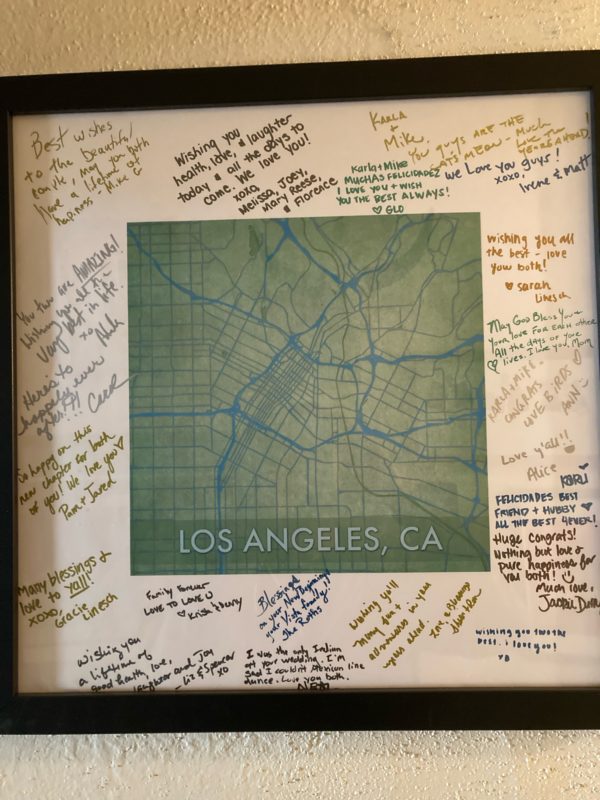 Best wishes
to the Beautiful
May you both
have a lifetime of
happiness - Mike G
Wishing you
health, love, & laughter
today & all the days to
come. We love you!
xoxo,
Melissa, Joey,
Mary Reese,
& Florence
KARLA
+
Mike,
YOU GUYS ARE THE
CAT'S MEOW - Much
Love
YEARS AHEAD!
Karla + Mike
MUCHAS FELICIDADEZ
I LOVE YOU + WISH
YOU THE BEST ALWAYS!
♡ GLO
We Love You guys!
xoxo,
Irene & Matt
You two are AMAZING!
Wishing you all the
very best in life.
xo
Here's to
happily ever
after!!!
So happy on this
new chapter for both
of you! We love you ♡
Pam + Jared
Many blessings &
love to yall!
xoxo,
Gracie
Linesch
wishing you all
the best - love
you both!
♡ sarah
linesch
May God Bless You &
your love For Each other
All the days of your
♡ lives. I love you, Mom
KARLA + MIKE.
CONGRATS
LOVE BIRDS ♡
ANN
Love y'all!!
Alice
KARLI
FELICIDADES BEST
FRIEND + HUBBY ♡
ALL THE BEST 4EVER!
Huge Congrats!
Nothing but love &
pure happiness for
you both!
Much love,
LOS ANGELES, CA
Family Forever
LOVE TO LOVE U
♡
Blessings
on your New Beginnings
your Vista family!
The Ruths
wishing you
a lifetime of
good health, love,
laughter and Joy
- Liz & Spencer
xo
I was the only Indian
at your wedding. I'm
sad I couldn't Mexican line
dance. Love you both.
Wishing y'all
many fun
adventures in your
years ahead.
wishing you two the
best. i love you!
♡B